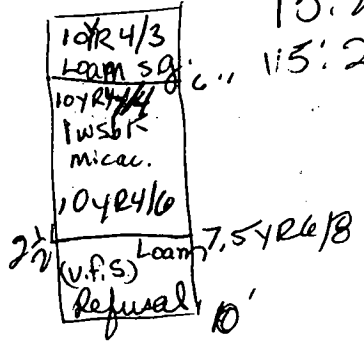 10YR 4/3
Loam sg
6"
10YR 4/4
1wsbk
micac.
10YR4/6
2½
Loam 7.5YR6/8
(v.f.s)
Refusal 10'